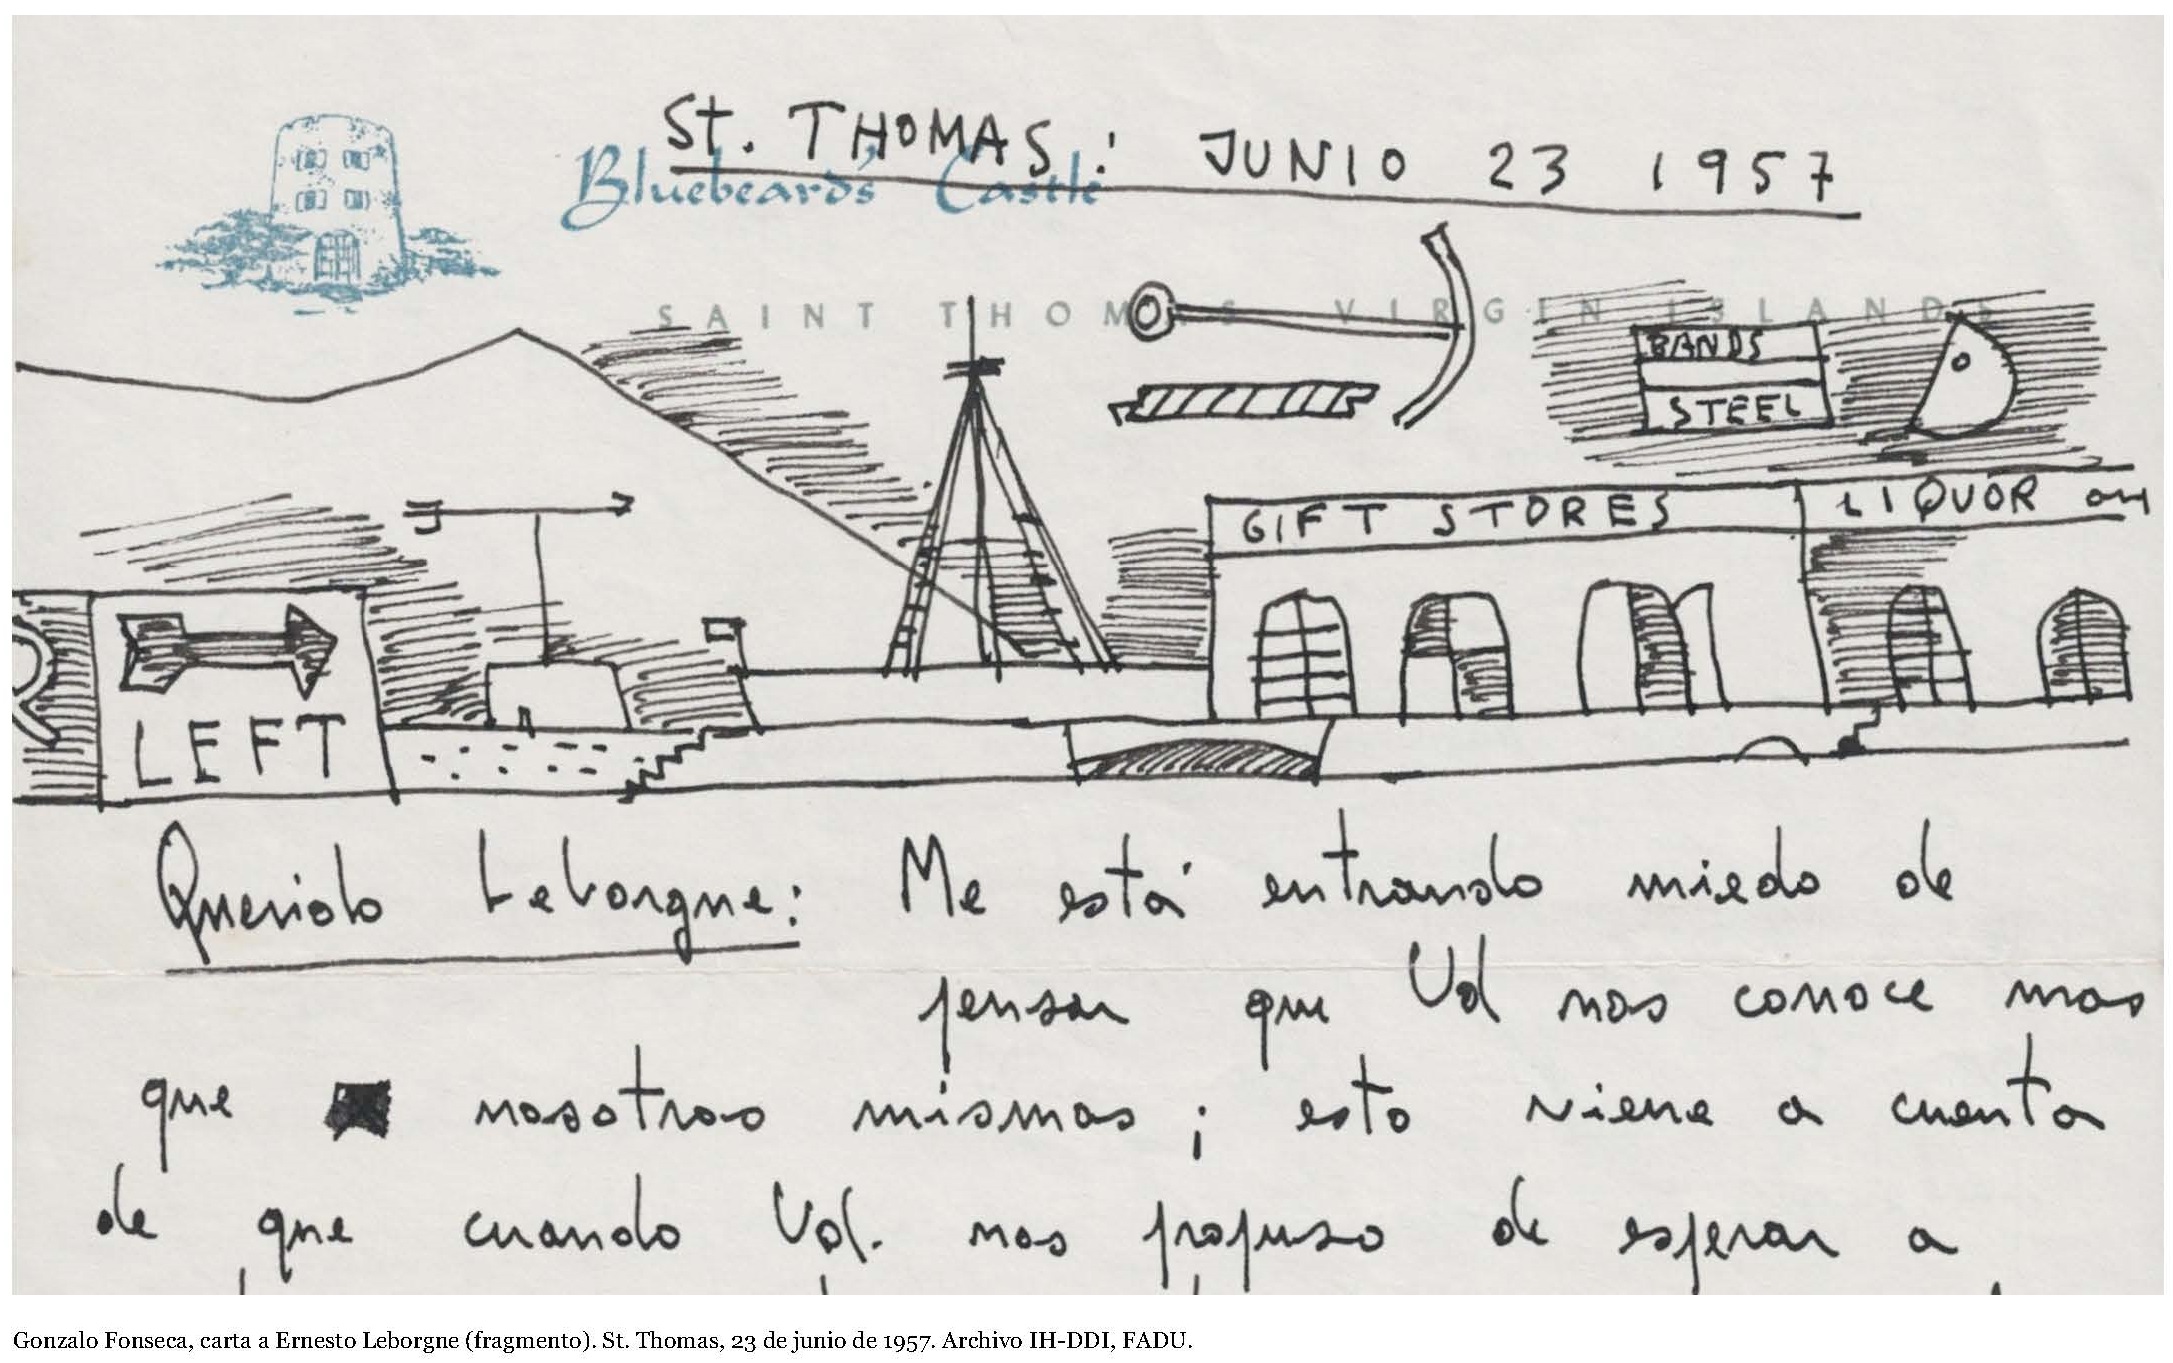 St. THOMAS: JUNIO 23 1957
Bluebeard's Castle
SAINT THOMAS VIRGIN ISLANDS
BANDS
STEEL
GIFT STORES
LIQUOR
LEFT
Querido Leborgne: Me está entrando miedo de
pensar que Ud nos conoce mas
que nosotros mismos; esto viene a cuenta
de que cuando Ud. nos propuso de esperar a
Gonzalo Fonseca, carta a Ernesto Leborgne (fragmento). St. Thomas, 23 de junio de 1957. Archivo IH-DDI, FADU.